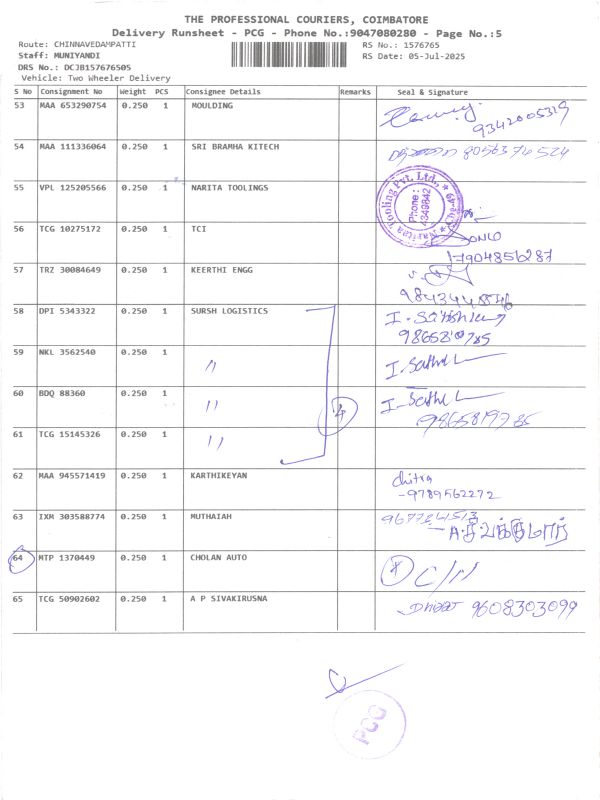 THE PROFESSIONAL COURIERS, COIMBATORE
Delivery Runsheet - PCG - Phone No.:9047080280 - Page No.:5
Route: CHINNAVEDAMPATTI RS No.: 1576765
Staff: MUNIYANDI RS Date: 05-Jul-2025
DRS No.: DCJB157676505
Vehicle: Two Wheeler Delivery
S No Consignment No Weight PCS Consignee Details Remarks Seal & Signature
53 MAA 653290754 0.250 1 MOULDING
9342005319
54 MAA 111336064 0.250 1 SRI BRAMHA KITECH 8056374524
55 VPL 125205566 0.250 1 NARITA TOOLINGS
Phone : 4349842
56 TCG 10275172 0.250 1 TCI
7904856287
57 TRZ 30084649 0.250 1 KEERTHI ENGG
58 DPI 5343322 0.250 1 SURSH LOGISTICS
59 NKL 3562540 0.250 1 〃
60 BDQ 88360 0.250 1 〃 4
9865819785
61 TCG 15145326 0.250 1 〃
62 MAA 945571419 0.250 1 KARTHIKEYAN chitra
-9789562272
63 IXM 303588774 0.250 1 MUTHAIAH
64 MTP 1370449 0.250 1 CHOLAN AUTO
65 TCG 50902602 0.250 1 A P SIVAKIRUSNA 9608303099
PCG